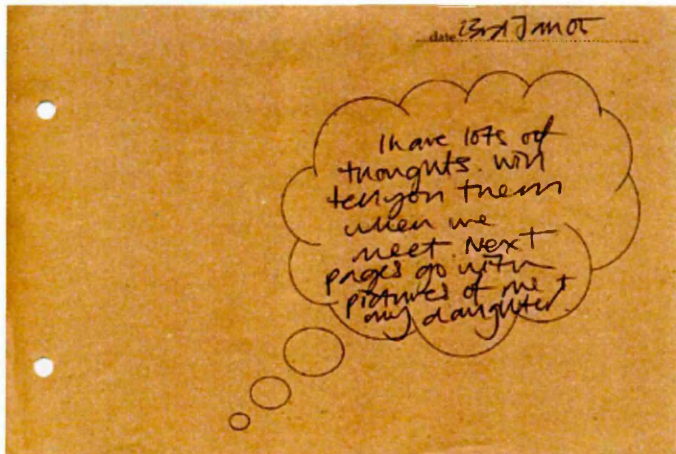 date 23rd Jan 05
I have lots of
thoughts. will
tell you them
when we
meet. Next
pages go with
pictures of me +
my daughter.